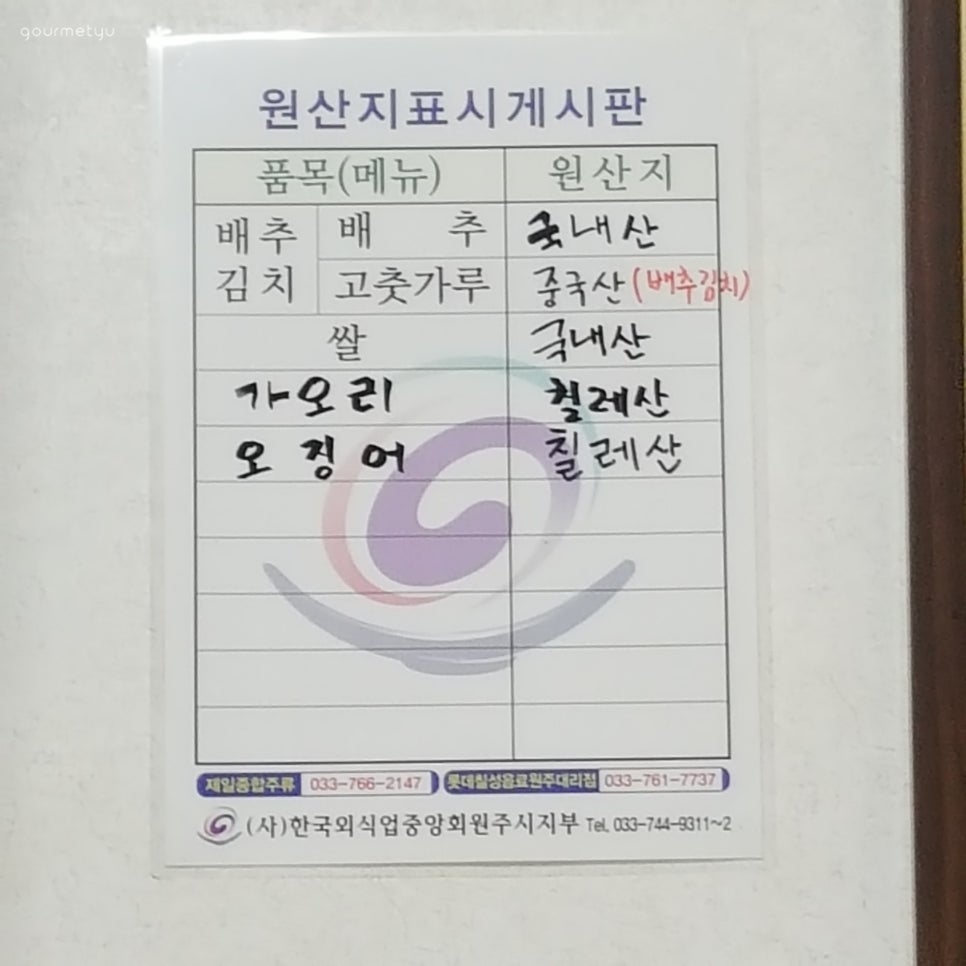 gourmetyu
원산지표시게시판
품목(메뉴) 원산지
배추김치 배추 국내산
고춧가루 중국산 (배추김치)
쌀 국내산
가오리 칠레산
오징어 칠레산
제일종합주류 033-766-2147 롯데칠성음료원주대리점 033-761-7737
(사)한국외식업중앙회원주시지부 Tel. 033-744-9311~2